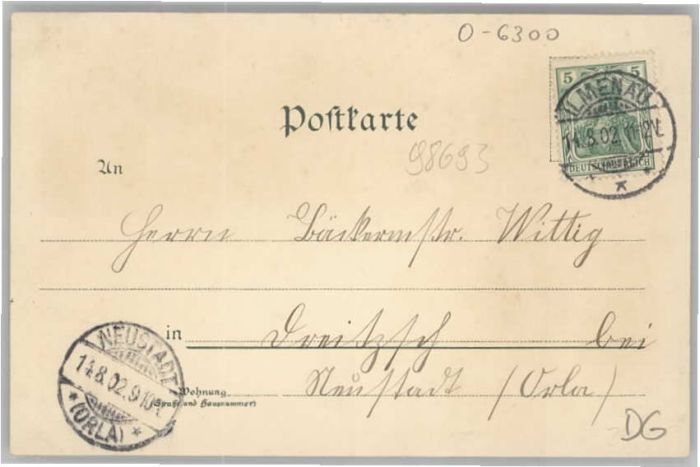 O-6300
5 5
ILMENAU
14.8.02. 11-12V.
DEUTSCHES REICH
Postkarte
98693
An
Herrn Bäckermstr. Wittig
in Dreitzsch bei
Neustadt (Orla)
Wohnung
(Straße und Hausnummer)
NEUSTADT
14.8.02. 9-10N.
* (ORLA) *
DG